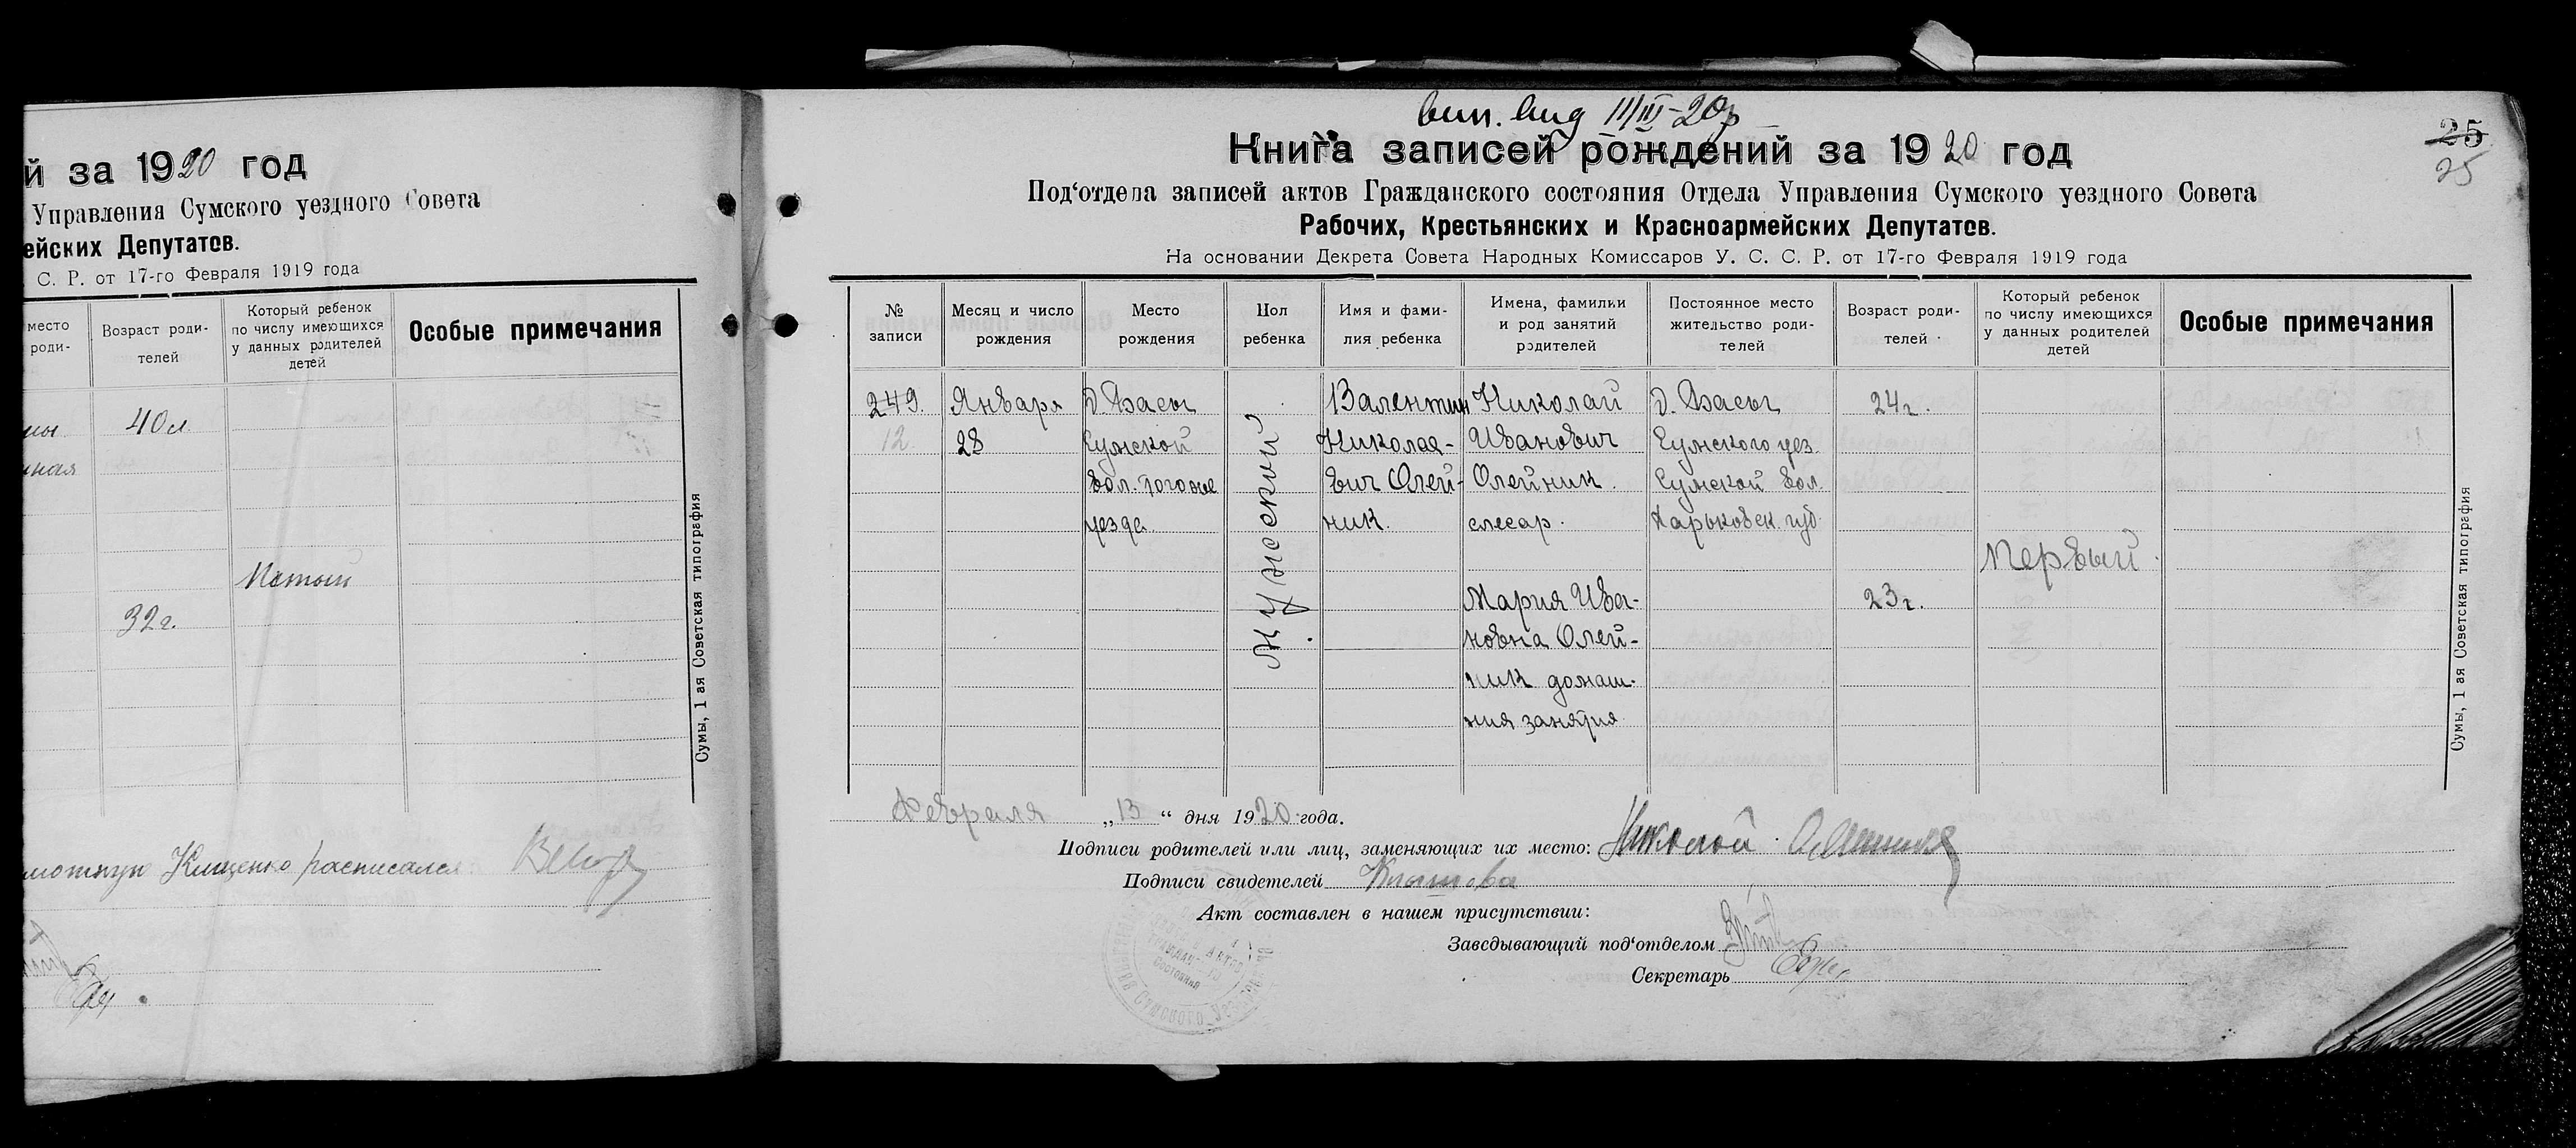 й за 1920 год
Управления Сумского уездного Совета
ейских Депутатов.
С. Р. от 17-го Февраля 1919 года
место роди-
Возраст роди-
телей
Который ребенок
по числу имеющихся
у данных родителей
детей
Особые примечания
40 л
ная
Пятый
32 г.
Клищенко расписался
Сумы, 1 ая Советская типография
вип. вид 11/III-20р
25
25
Книга записей рождений за 1920 год
Под‘отдела записей актов Гражданского состояния Отдела Управления Сумского уездного Совета
Рабочих, Крестьянских и Красноармейских Депутатов.
На основании Декрета Совета Народных Комиссаров У. С. С. Р. от 17-го Февраля 1919 года
№
записи
Месяц и число
рождения
Место
рождения
Пол
ребенка
Имя и фами-
лия ребенка
Имена, фамилии
и род занятий
родителей
Постоянное место
жительство роди-
телей
Возраст роди-
телей
Который ребенок
по числу имеющихся
у данных родителей
детей
Особые примечания
249.
12
Января
28
д. Басы
Сумской
вол. того же
уезда
Мужской
Валентин
Николае-
вич Олей-
ник.
Николай
Иванович
Олейник.
слесар.
Мария Ива-
новна Олей-
ник домаш-
ния занятия
д. Басы
Сумского уез.
Сумской вол.
Харьковск. губ.
24 г.
23 г.
Первый.
Февраля „13“ дня 1920 года.
Подписи родителей или лиц, заменяющих их место: Николай
Подписи свидетелей
Акт составлен в нашем присутствии:
Заведывающий под‘отделом
Секретарь
Сумы, 1 ая Советская типография